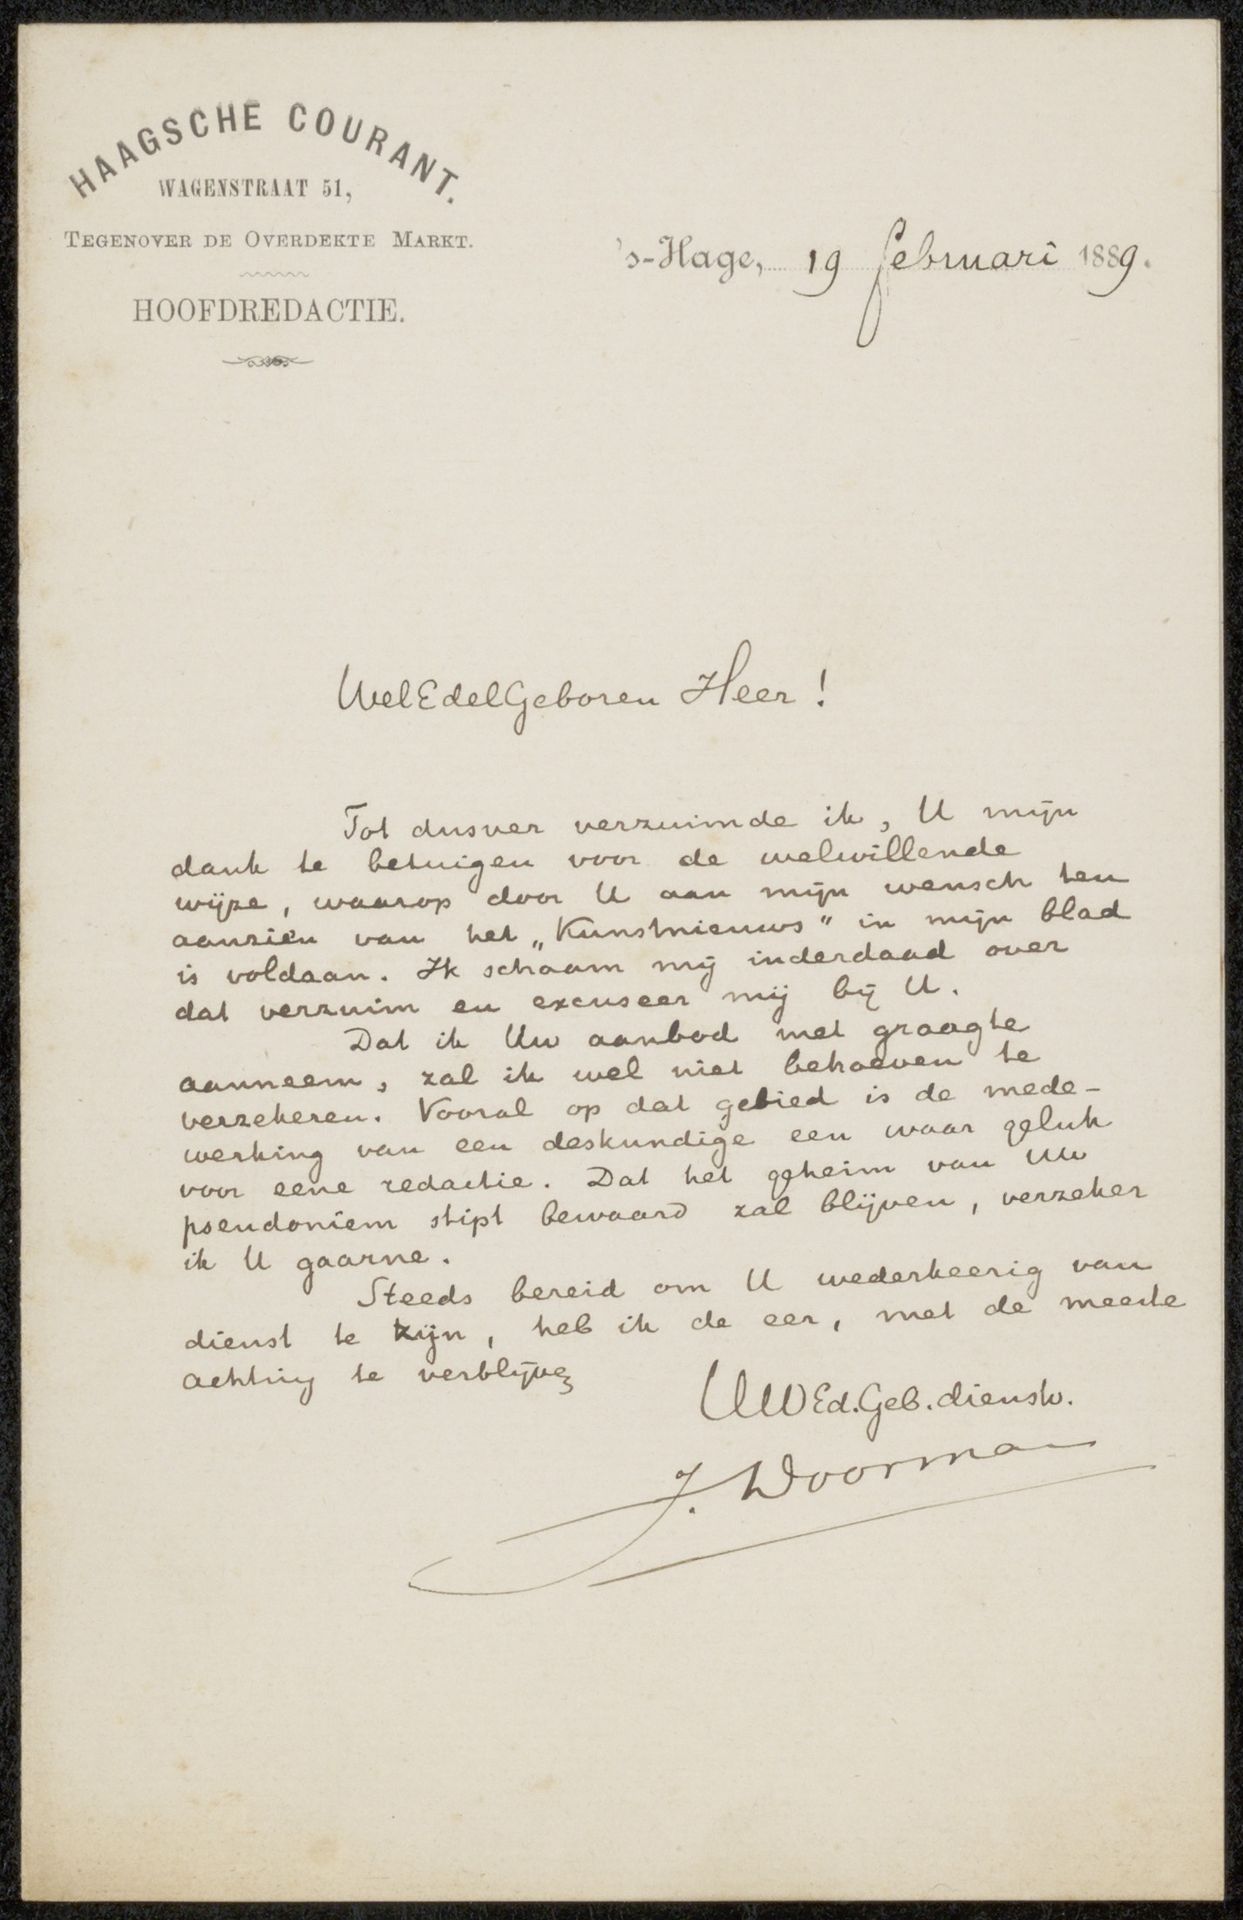 HAAGSCHE COURANT.
WAGENSTRAAT 51,
TEGENOVER DE OVERDEKTE MARKT.
HOOFDREDACTIE.
's-Hage, 19 februari 1889.
WelEdelGeboren Heer!
Tot dusver verzuimde ik, U mijn
dank te betuigen voor de welwillende
wijze, waarop door U aan mijn wensch ten
aanzien van het „Kunstnieuws" in mijn blad
is voldaan. Ik schaam mij inderdaad over
dat verzuim en excuseer mij bij U.
Dat ik Uw aanbod met graagte
aanneem, zal ik wel niet behoeven te
verzekeren. Vooral op dat gebied is de mede-
werking van een deskundige een waar geluk
voor eene redactie. Dat het geheim van Uw
pseudoniem stipt bewaard zal blijven, verzeker
ik U gaarne.
Steeds bereid om U wederkeerig van
dienst te zijn, heb ik de eer, met de meeste
achting te verblijven
UWEd.Geb.dienstw.
J. Doorman